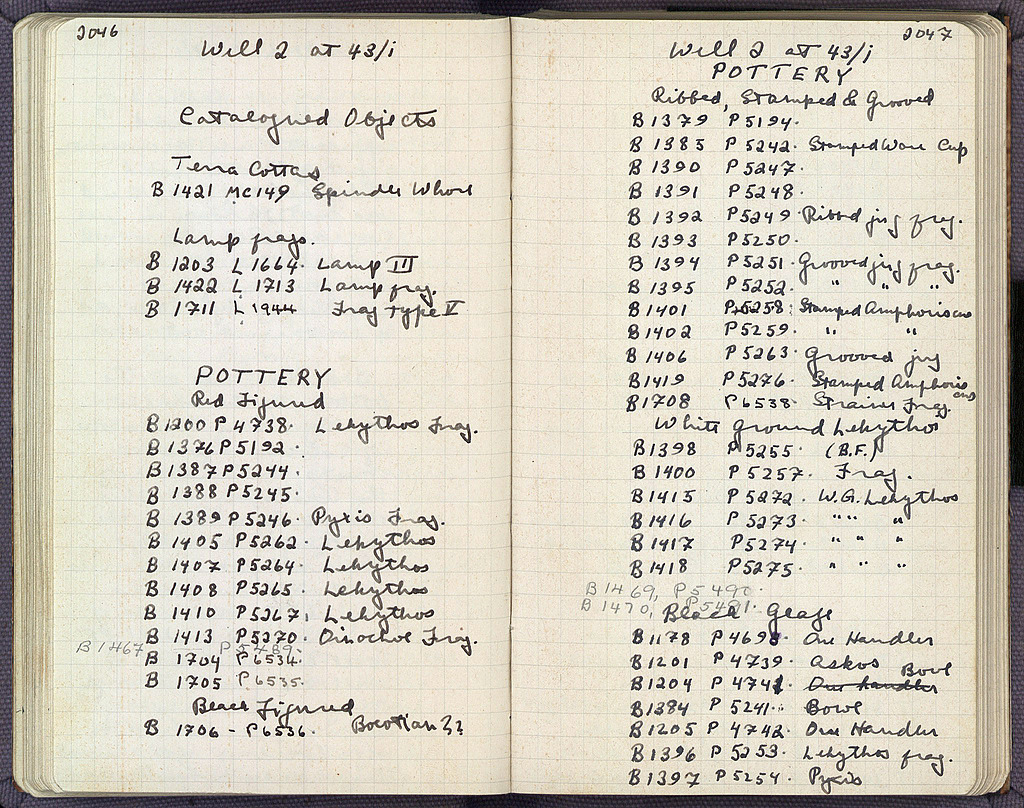 2046
Well 2 at 43/i
Catalogued Objects
Terra Cottas
B 1421 MC149 Spindle Whorl
Lamp frags.
B 1203 L 1664. Lamp III
B 1422 L 1713 Lamp frag.
B 1711 L 1944 Frag type V
POTTERY
Red Figured
B 1200 P 4738. Lekythos Frag.
B 1376 P5192.
B 1387 P5244.
B 1388 P5245.
B 1389 P5246. Pyxis Frag.
B 1405 P5262. Lekythos
B 1407 P5264. Lekythos
B 1408 P5265. Lekythos
B 1410 P5267. Lekythos
B 1413 P5270. Oinochoe Frag.
B 1467 P5489.
B 1704 P6534.
B 1705 P6535.
Black Figured
B 1706 - P6536. Boeotian??
2047
Well 2 at 43/i
POTTERY
Ribbed, Stamped & Grooved
B 1379 P5194.
B 1385 P5242. Stamped Ware Cup
B 1390 P5247.
B 1391 P5248.
B 1392 P5249. Ribbed jug frag.
B 1393 P5250.
B 1394 P5251. Grooved jug frag.
B 1395 P5252. " " "
B 1401 P5258. Stamped Amphoriscus
B 1402 P5259. " "
B 1406 P5263. Grooved jug
B 1419 P5276. Stamped Amphoriscus
B 1708 P6538. Strainer Frag.
White ground Lekythos
B 1398 P5255. (B.F.)
B 1400 P5257. Frag.
B 1415 P5272. W.G. Lekythos
B 1416 P5273. " " "
B 1417 P5274. " " "
B 1418 P5275. " " "
B 1469, P5490.
B 1470, P5491.
Black Glaze
B 1178 P 4698. One Handler
B 1201 P 4739. Askos
B 1204 P 4741. One handler Bowl
B 1384 P 5241. Bowl
B 1205 P 4742. One Handler
B 1396 P 5253. Lekythos frag.
B 1397 P 5254. Pyxis